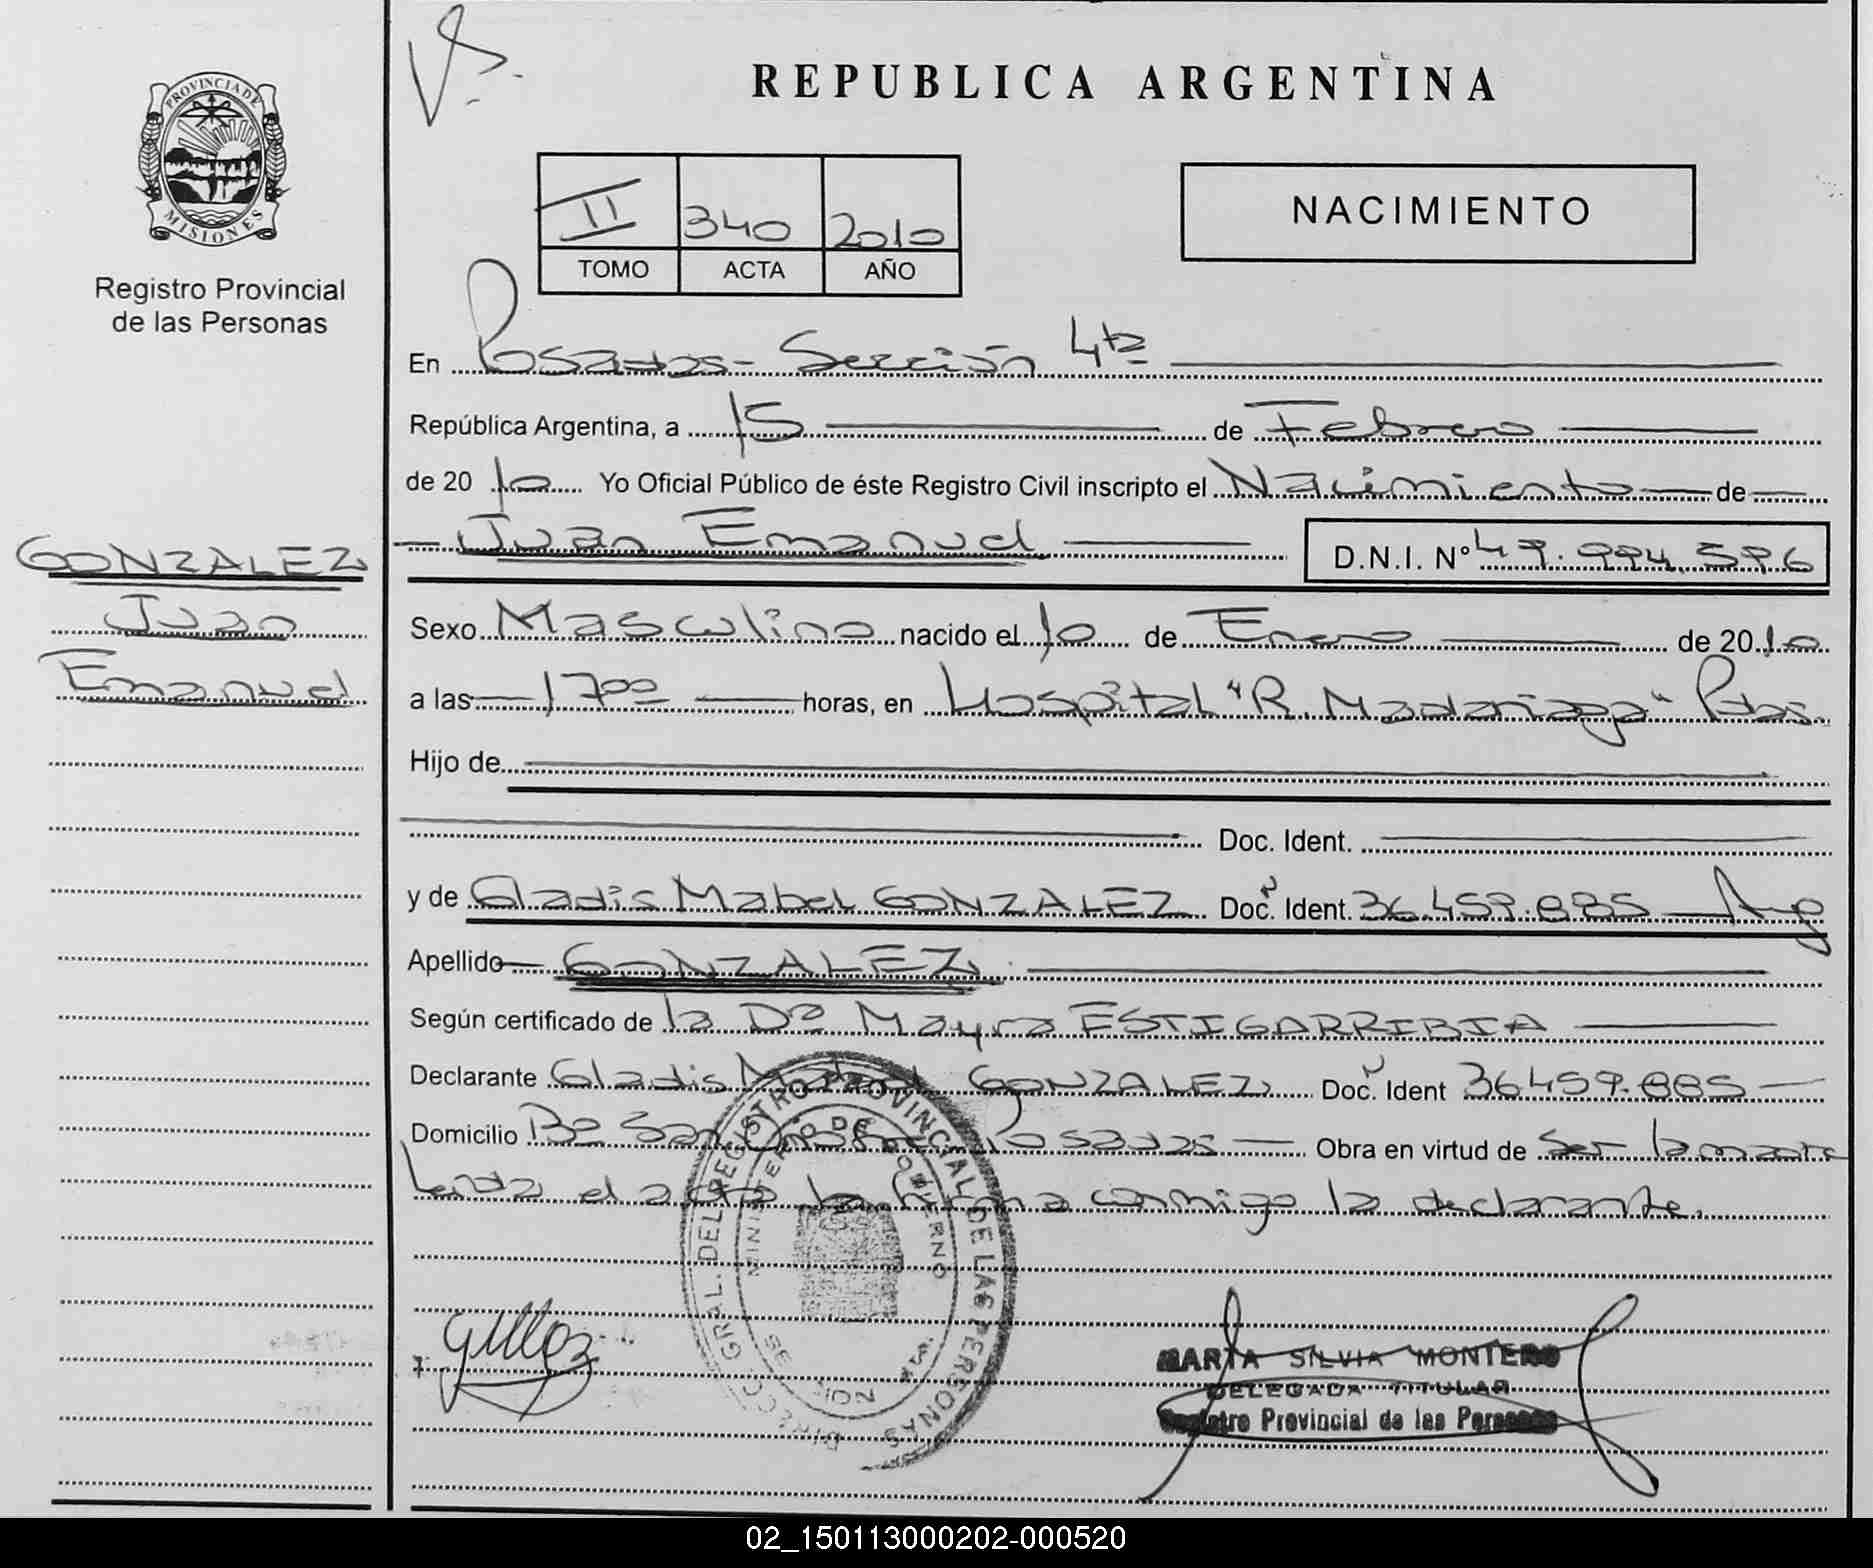 PROVINCIA DE
MISIONES
Registro Provincial
de las Personas
GONZALEZ
Juan
Emanuel
REPUBLICA ARGENTINA
II 340 2010
TOMO ACTA AÑO
NACIMIENTO
En Posadas - Sección 4ta
República Argentina, a 15 de Febrero
de 20 10 Yo Oficial Público de éste Registro Civil inscripto el Nacimiento de
Juan Emanuel D.N.I. Nº
Sexo Masculino nacido el 10 de Enero de 20 10
a las 17 00 horas, en Hospital "R. Madariaga" Pdas.
Hijo de
Doc. Ident.
y de Gladis Mabel GONZALEZ Doc. Ident. 36.459.885 Arg
Apellido GONZALEZ
Según certificado de la Dra Mayra ESTIGARRIBIA
Declarante Gladis Mabel GONZALEZ Doc. Ident 36.459.885
Domicilio Bº San Posadas Obra en virtud de ser la madre
Leida el acta la firma conmigo la declarante.
DIRECC. GRAL. DEL REGISTRO PROVINCIAL DE LAS PERSONAS
MINISTERIO DE GOBIERNO
MARIA SILVIA MONTERO
DELEGADA TITULAR
Registro Provincial de las Personas
02_150113000202-000520